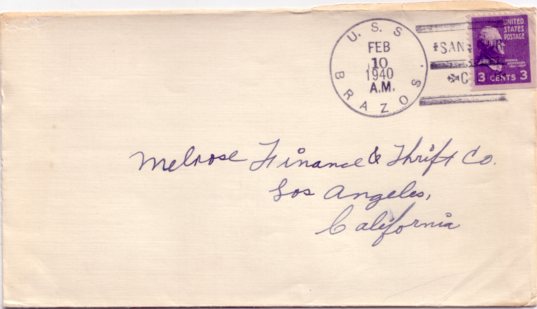 U.S.S. BRAZOS.
FEB
10
1940
A.M.
UNITED
STATES
POSTAGE
3 CENTS 3
Melrose Finance & Thrift Co.
Los Angeles,
California